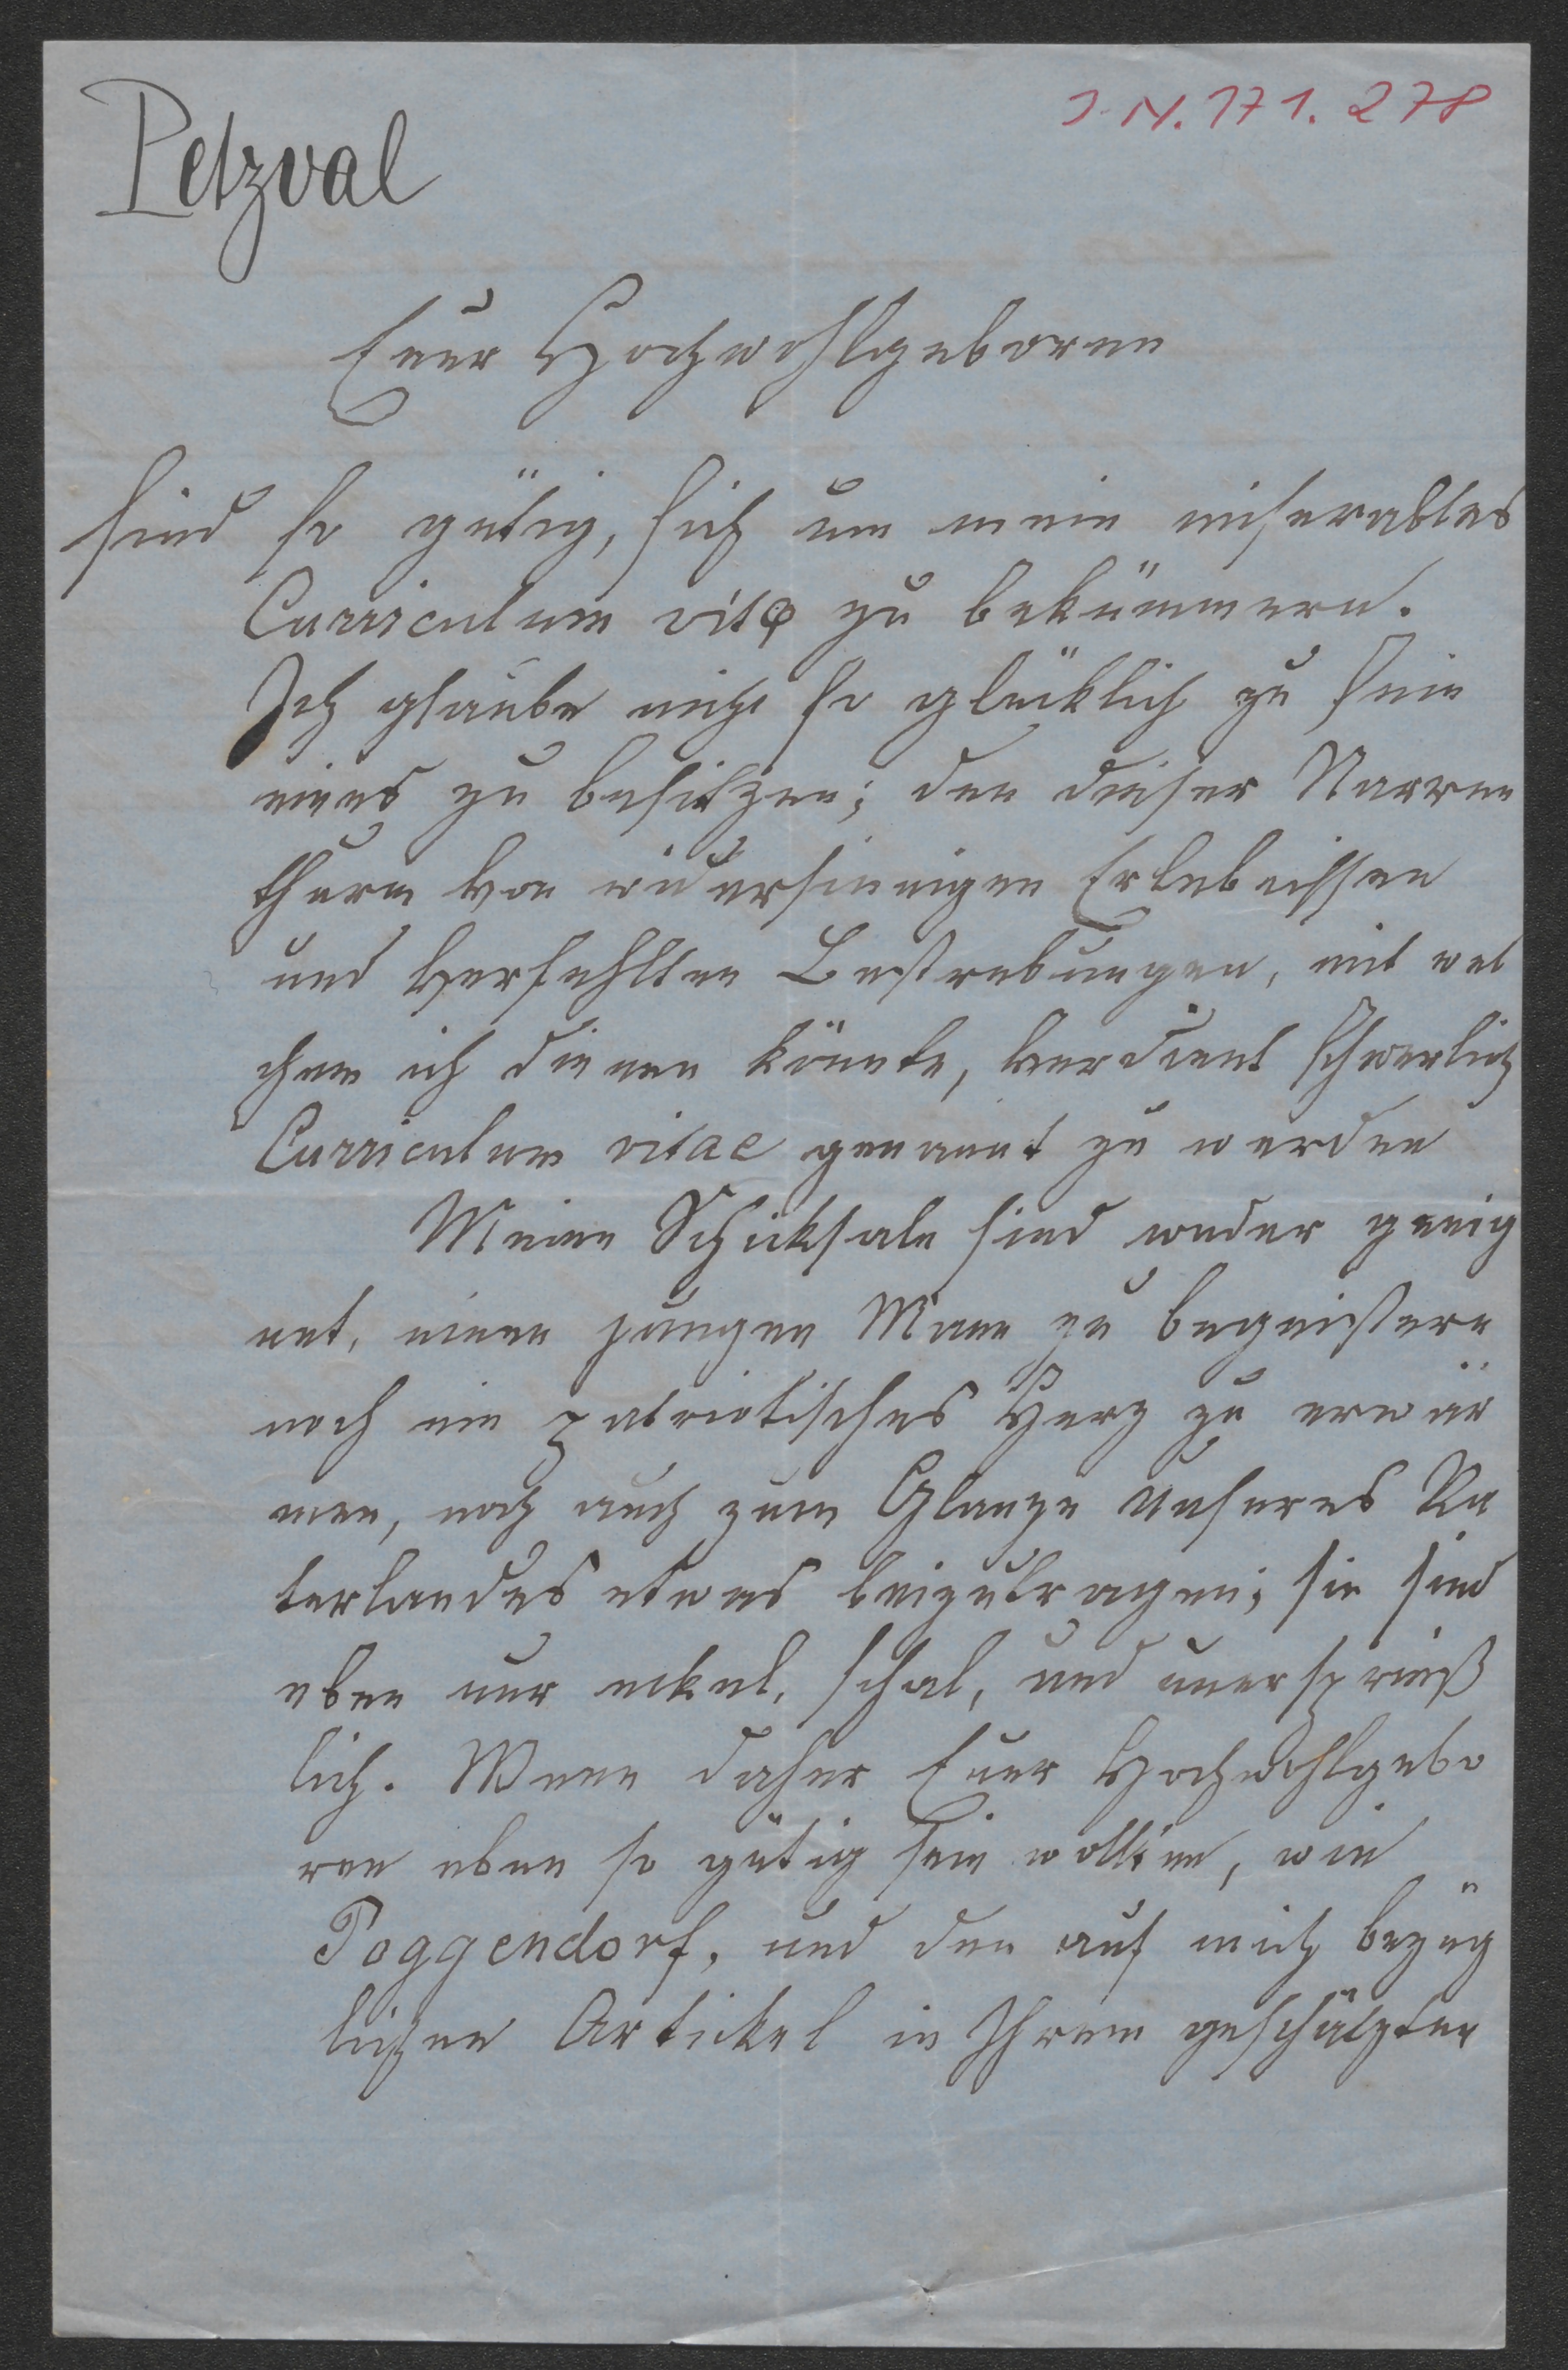 Petzval
I. N. 171.278
Euer Hochwohlgeboren
sind so gütig, sich um mein miserables
Curriculum vitae zu bekümmern.
Ich glaube nicht so glücklich zu sein
eines zu besitzen; den dieser Narren
thurm von widersinnigen Erlebnissen
und verfehlten Bestrebungen, mit wel
chem ich dienen könnte, verdient schwerlich
Curriculum vitae genannt zu werden
Meine Schicksale sind weder geeig
net, einen jungen Mann zu begeistern
noch ein patriotisches Herz zu erwär
men, noch auch zum Glanze unseres Va
terlandes etwas beizutragen; sie sind
eben nur eckel, schal, und unersprieß
lich. Wenn daher Euer Hochwohlgebo
ren eben so gütig sein wollten, wie
Poggendorf, und den auf mich bezüg
lichen Artickel in Ihrem geschätzten